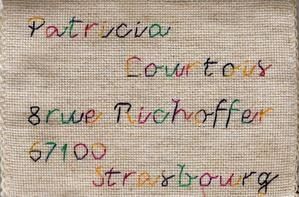 Patricia
Courtois
8 rue Richoffer
67100
Strasbourg